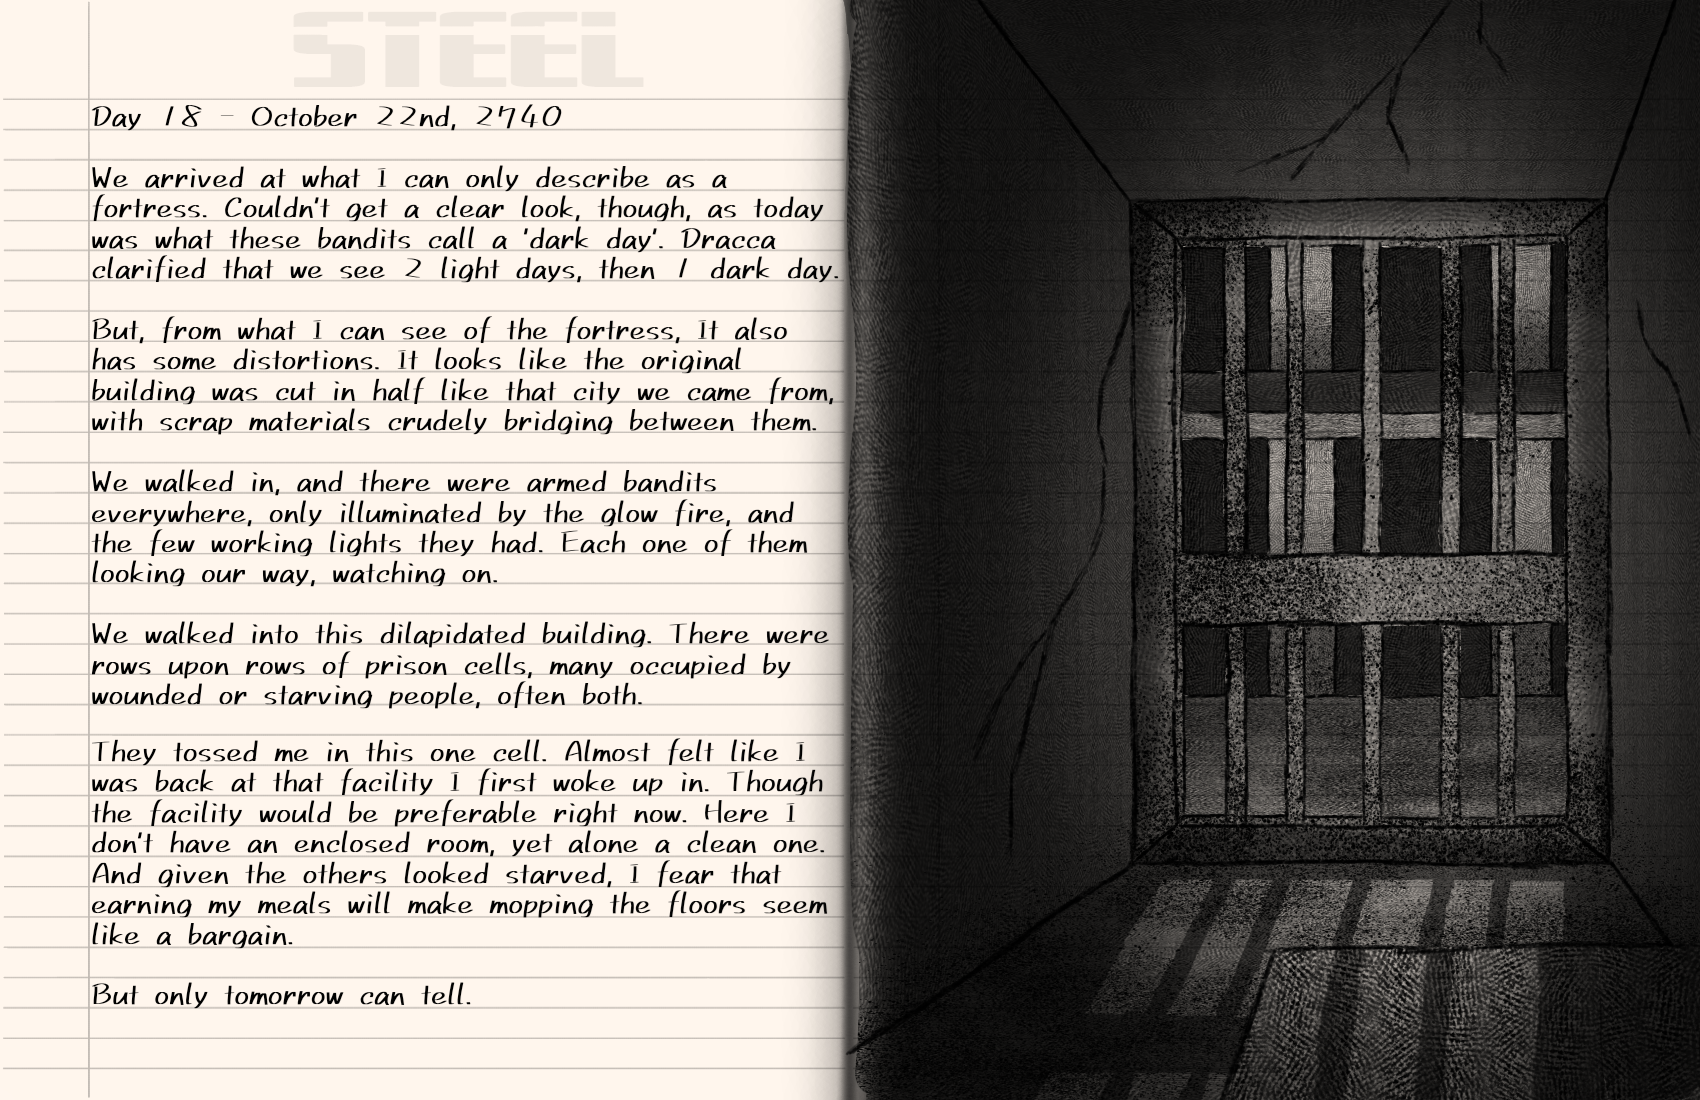 STEEL
Day 18 - October 22nd, 2740
We arrived at what I can only describe as a
fortress. Couldn't get a clear look, though, as today
was what these bandits call a 'dark day'. Dracca
clarified that we see 2 light days, then 1 dark day.
But, from what I can see of the fortress, It also
has some distortions. It looks like the original
building was cut in half like that city we came from,
with scrap materials crudely bridging between them.
We walked in, and there were armed bandits
everywhere, only illuminated by the glow fire, and
the few working lights they had. Each one of them
looking our way, watching on.
We walked into this dilapidated building. There were
rows upon rows of prison cells, many occupied by
wounded or starving people, often both.
They tossed me in this one cell. Almost felt like I
was back at that facility I first woke up in. Though
the facility would be preferable right now. Here I
don't have an enclosed room, yet alone a clean one.
And given the others looked starved, I fear that
earning my meals will make mopping the floors seem
like a bargain.
But only tomorrow can tell.